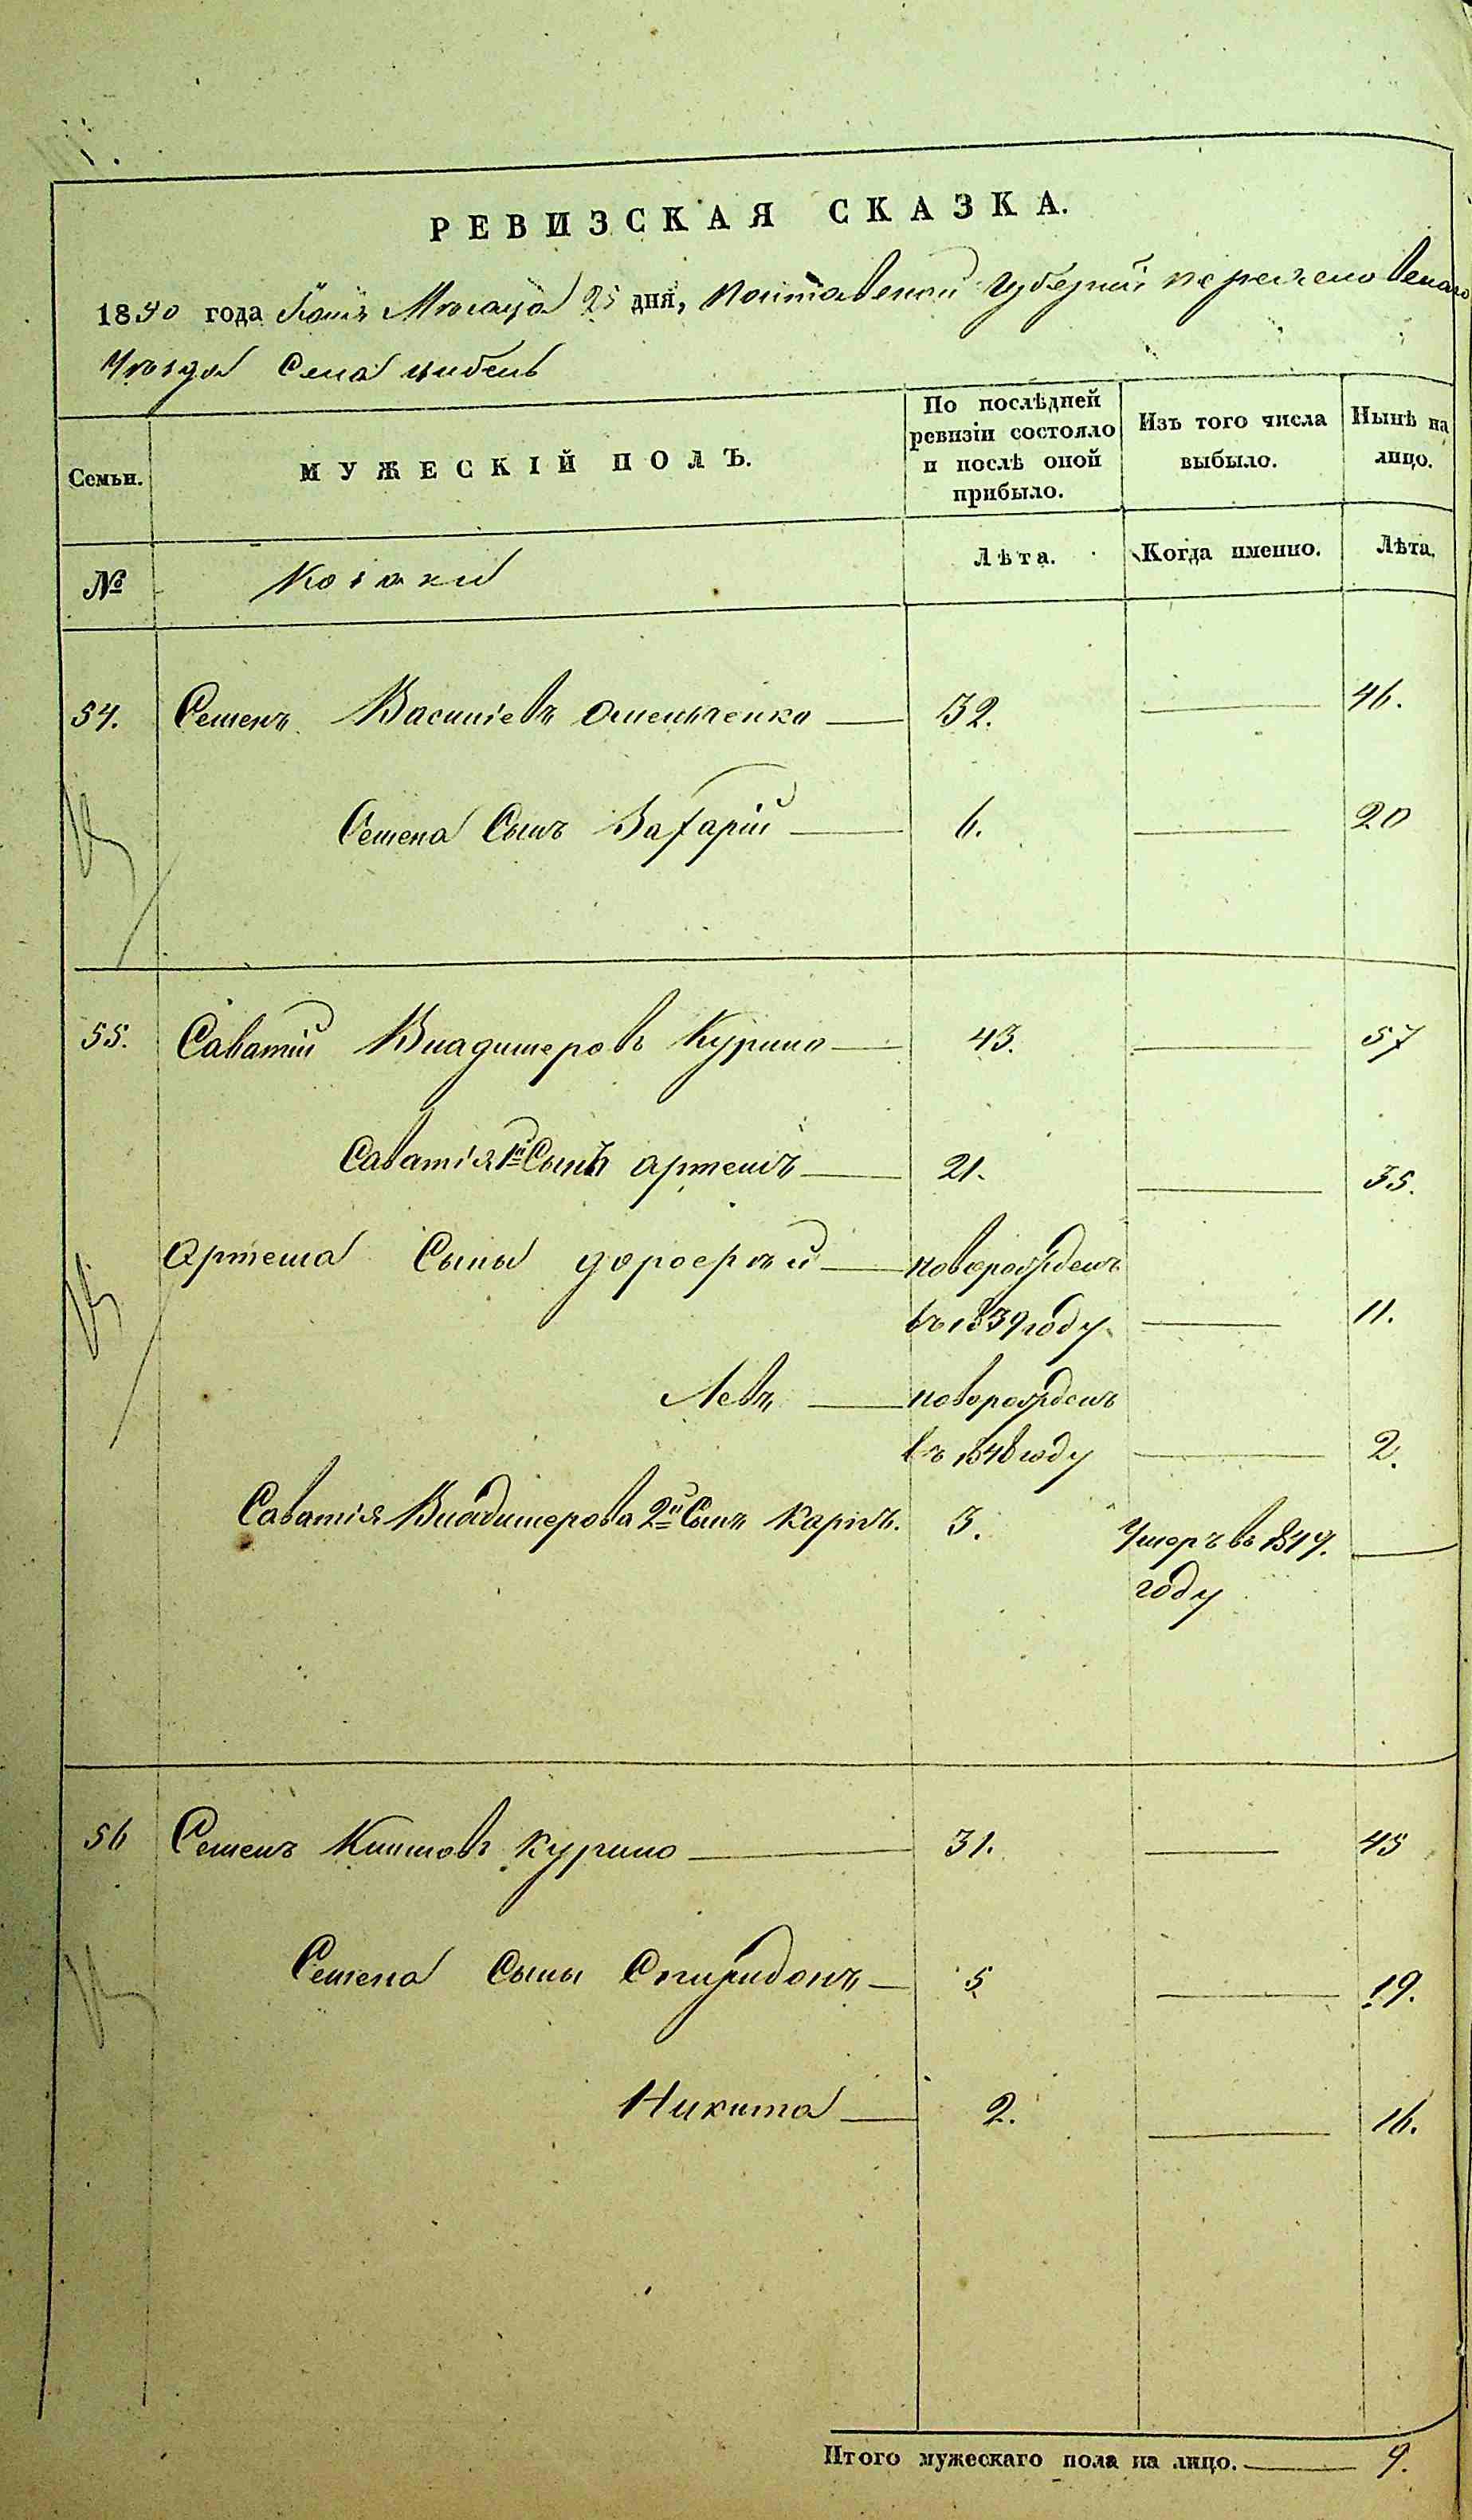 РЕВИЗСКАЯ СКАЗКА.
1850 года Мѣсяца 25 дня, Полтавской Губерніи Переяславскаго
Уѣзда Села Цибель
Семьи. МУЖЕСКІЙ ПОЛЪ. По послѣдней ревизіи состояло и послѣ оной прибыло. Изъ того числа выбыло. Нынѣ на лицо.
№ Козаки Лѣта. Когда именно. Лѣта.
54. Семенъ Василіевъ Омельченко 32. 46.
Семена Сынъ Захарій 6. 20
55. Саватій Владимеровъ Курило 43. 57
Саватія 1й Сынъ Артемъ 21. 35.
Артема Сыны Дорофѣй новорожденъ
въ 1839 году 11.
Левъ новорожденъ
въ 1848 году 2.
Саватія Владимерова 2й Сынъ Карпъ. 3. Умеръ въ 1849.
году
56 Семенъ Климовъ Курило 31. 45
Семена Сыны Спиридонъ 5 19.
Никита 2. 16.
Итого мужескаго пола на лицо. 9.